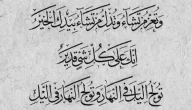 وتعز من تشاء وتذل من تشاء بيدك الخير
إنك على كل شئ قدير
تولج اليل في النهار وتولج النهار في اليل